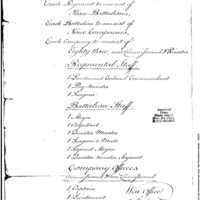 Each Regiment to consist of
Three Battalions,
Each Battalion to consist of
Four Companies,
Each Company to consist of
Eighty three, non Commissioned & Privates
Regimental Staff.
1 Lieutenant Colonel Commandant
1 Pay Master
1 Surgeon
Battalion Staff.
1 Major
1 Adjutant
1 Quarter Master
1 Surgeon's Mate
1 Serjeant Major
1 Quarter Master Serjeant
Company Officers
Commissioned & Non Commissioned
1 Captain
1 Lieutenant
War Office